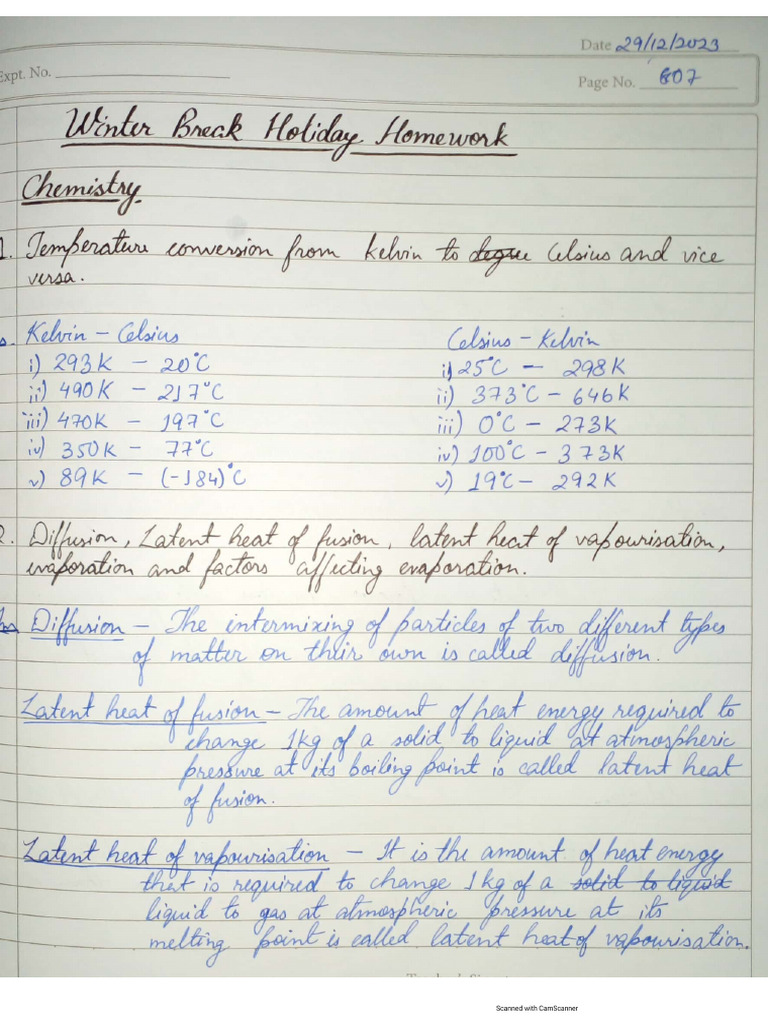 Date 29/12/2023
Expt. No.
Page No. 607
Winter Break Holiday Homework
Chemistry
1. Temperature conversion from Kelvin to degree Celsius and vice
versa.
Kelvin - Celsius
i) 293K - 20°C
ii) 490K - 217°C
iii) 470K - 197°C
iv) 350K - 77°C
v) 89K - (-184)°C
Celsius - Kelvin
i) 25°C - 298K
ii) 373°C - 646K
iii) 0°C - 273K
iv) 100°C - 373K
v) 19°C - 292K
2. Diffusion, Latent heat of fusion, latent heat of vapourisation,
evaporation and factors affecting evaporation.
Diffusion - The intermixing of particles of two different types
of matter on their own is called diffusion.
Latent heat of fusion - The amount of heat energy required to
change 1kg of a solid to liquid at atmospheric
pressure at its boiling point is called latent heat
of fusion.
Latent heat of vapourisation - It is the amount of heat energy
that is required to change 1kg of a solid to liquid
liquid to gas at atmospheric pressure at its
melting point is called latent heat of vapourisation.
Scanned with CamScanner